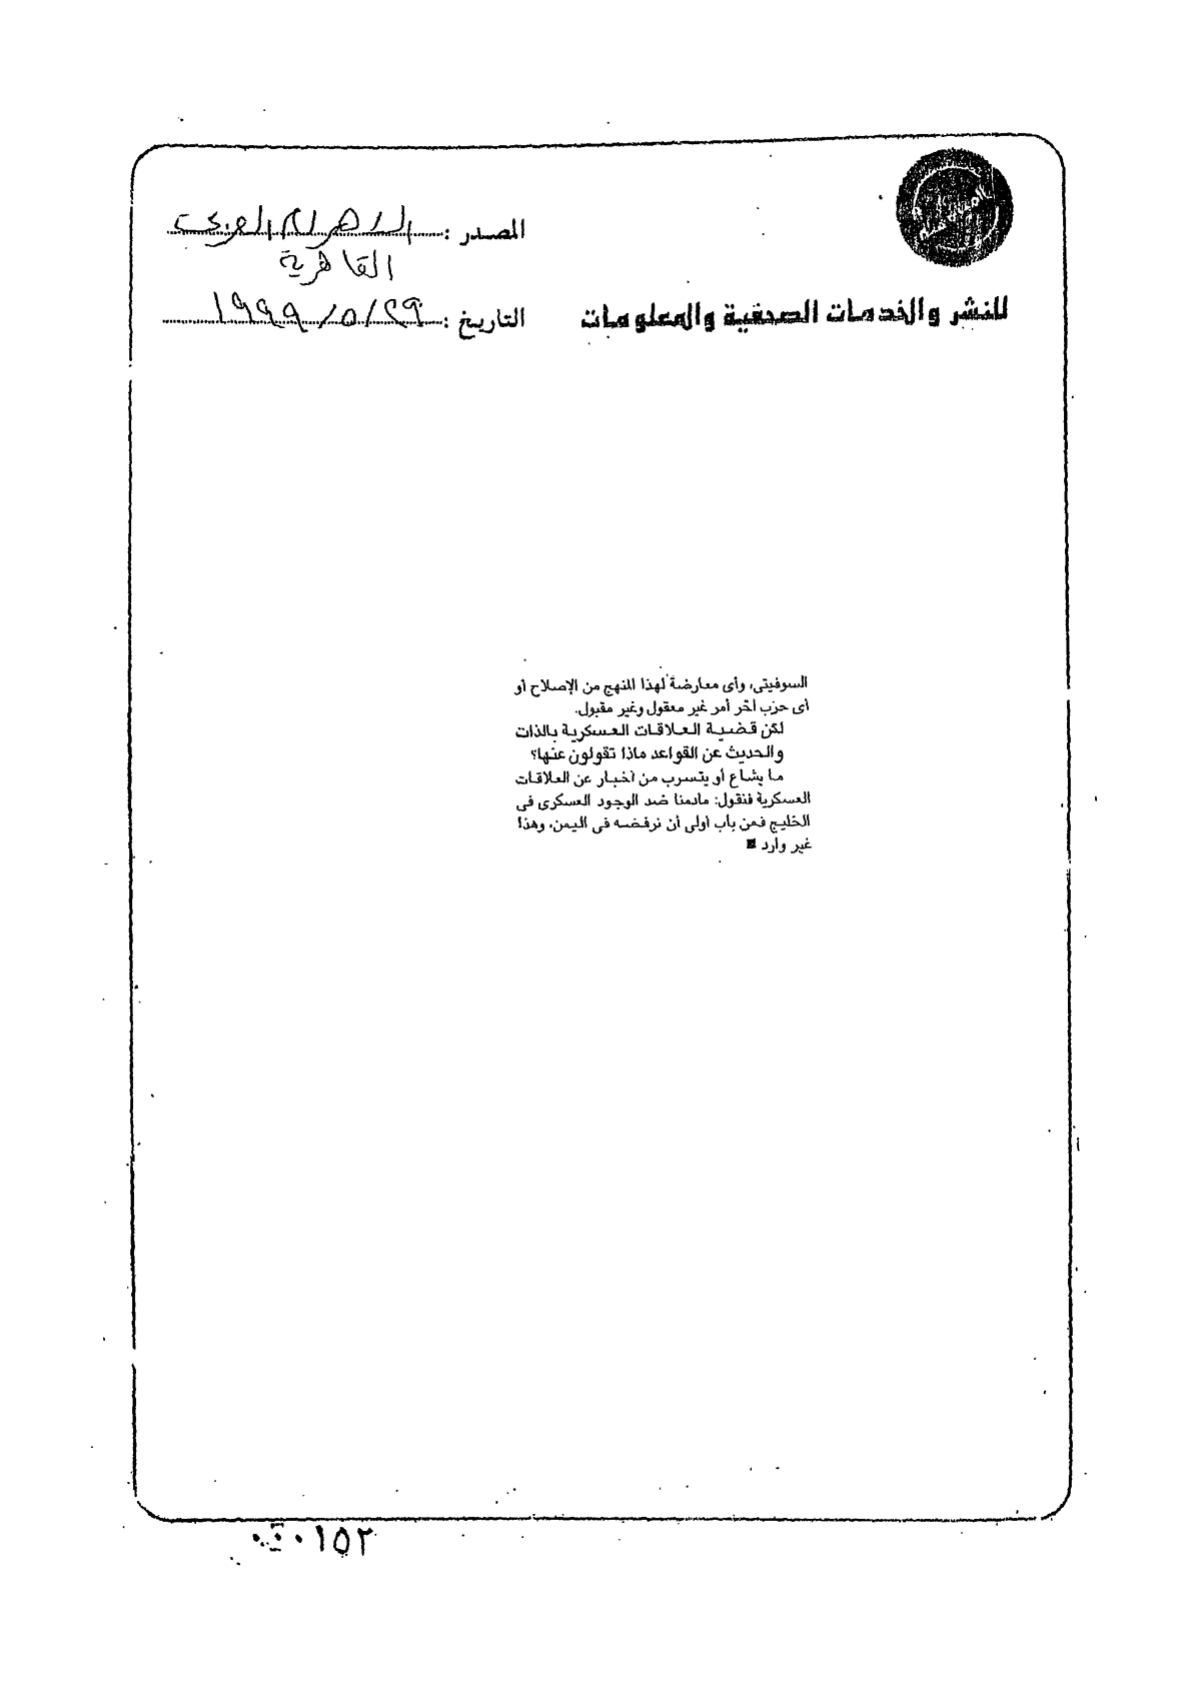 المصدر : الاهرام العربي
القاهرية
للنشر والخدمات الصحفية والمعلومات
التاريخ : ٢٩/ ٥/ ١٩٩٩
السوفيتى، وأى معارضة لهذا المنهج من الإصلاح أو
أى حزب آخر أمر غير معقول وغير مقبول.
لكن قضية العلاقات العسكرية بالذات
والحديث عن القواعد ماذا تقولون عنها؟
ما يشاع أو يتسرب من أخبار عن العلاقات
العسكرية فنقول: مادمنا ضد الوجود العسكرى فى
الخليج فمن باب أولى أن نرفضه فى اليمن، وهذا
غير وارد
١٥٢